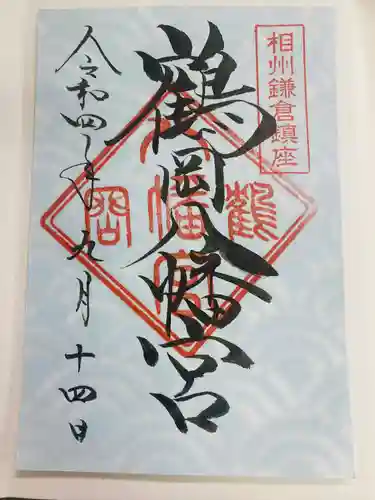 相州鎌倉鎮座
鶴岡八幡宮
令和四年九月十四日
鶴岡八幡宮